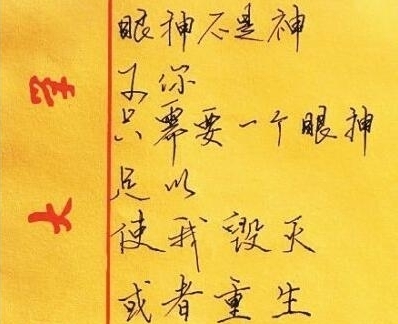 眼神不是神
你
只需要一个眼神
足以
使我毁灭
或者重生
大